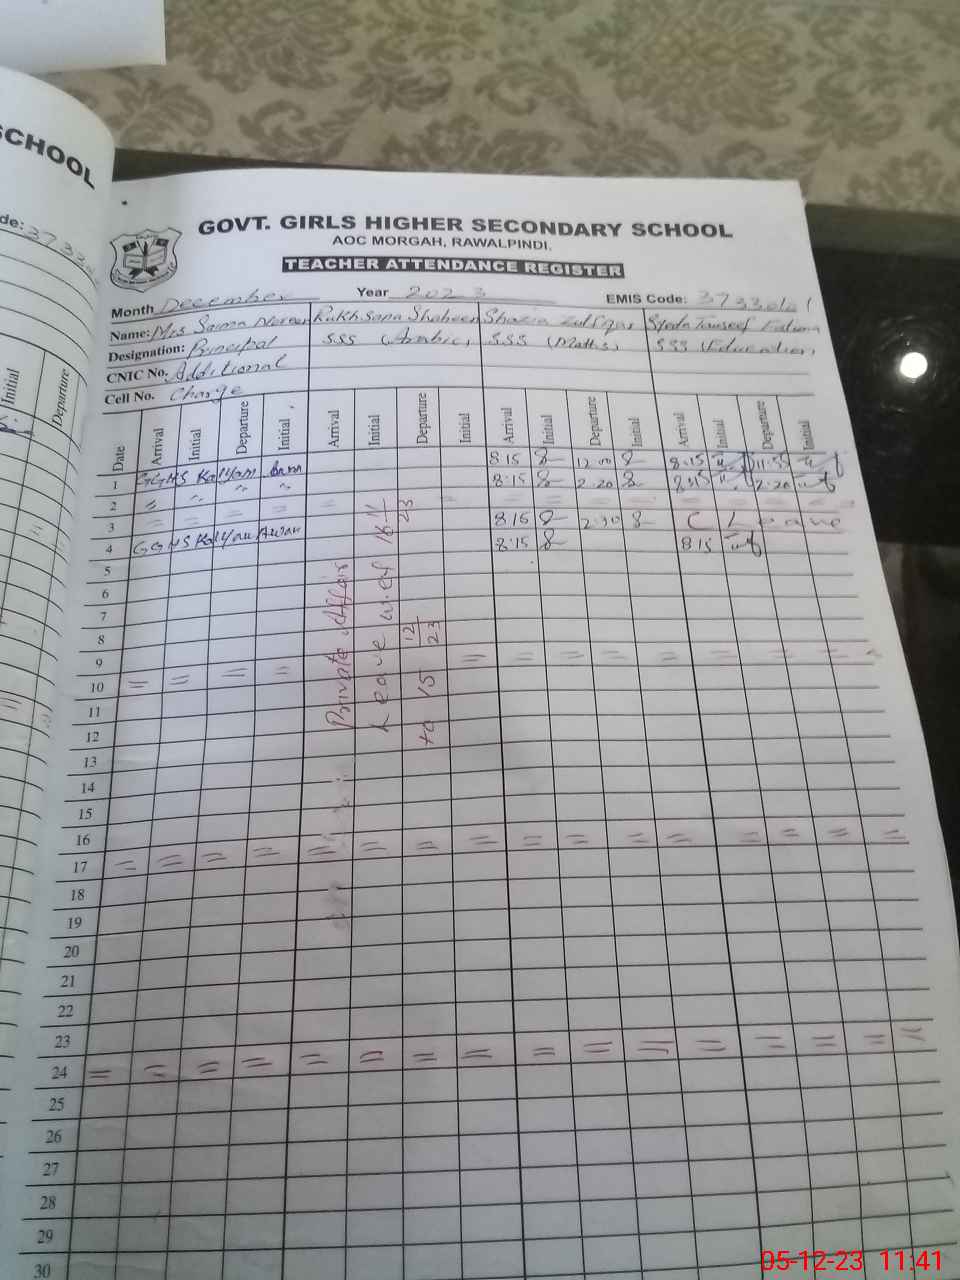 SCHOOL
GOVT. GIRLS HIGHER SECONDARY SCHOOL
AOC MORGAH, RAWALPINDI.
TEACHER ATTENDANCE REGISTER
Month December Year 2023 EMIS Code: 37330101
Name: Mrs Saima Noreen Rukhsana Shaheen Shazia Zulfqar Syeda Touseef Fatima
Designation: Principal SSS (Arabic) SSS (Maths) SSS (Education)
CNIC No. Additional
Cell No. Charge
Initial Departure
Date Arrival Initial Departure Initial Arrival Initial Departure Initial Arrival Initial Departure Initial Arrival Initial Departure Initial
1 GGHS Kalyam Awan 8:15 12:00 8:15 11:55
2 8:15 2:20 8:15 2:20
3 = = = =
4 GGHS Kalyam Awan 8:15 2:30 C Leave
8:15 8:15
5
6
7
8
9
10
11
12
13
14
15
16
17
18
19
20
21
22
23
24
25
26
27
28
29
30
Private Affair
Leave w.ef 18 11/23
to 15 12/23
05-12-23 11:41